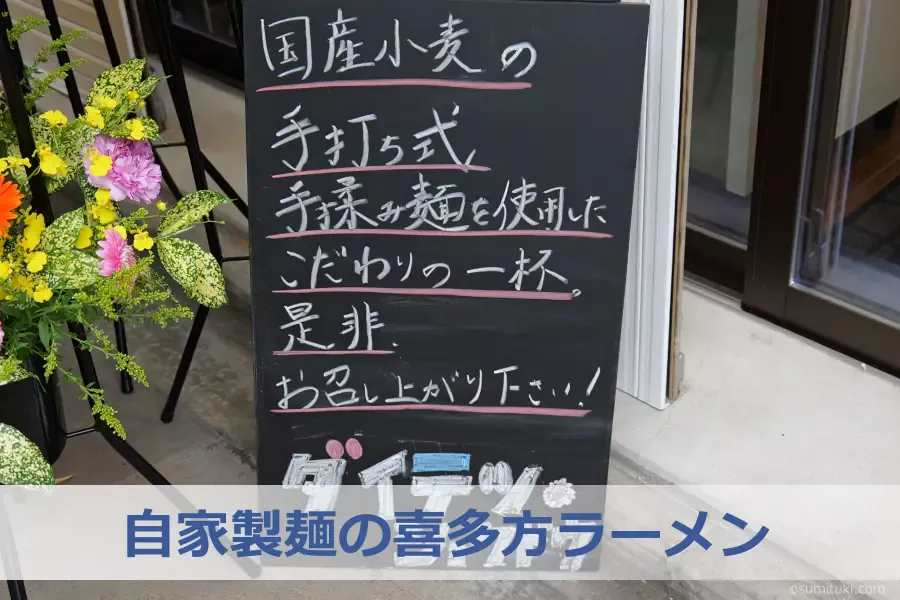 国産小麦の
手打ち式、
手揉み麺を使用した
こだわりの一杯。
是非、
お召し上がり下さい！
ダイテツ
自家製麺の喜多方ラーメン
osumituki.com